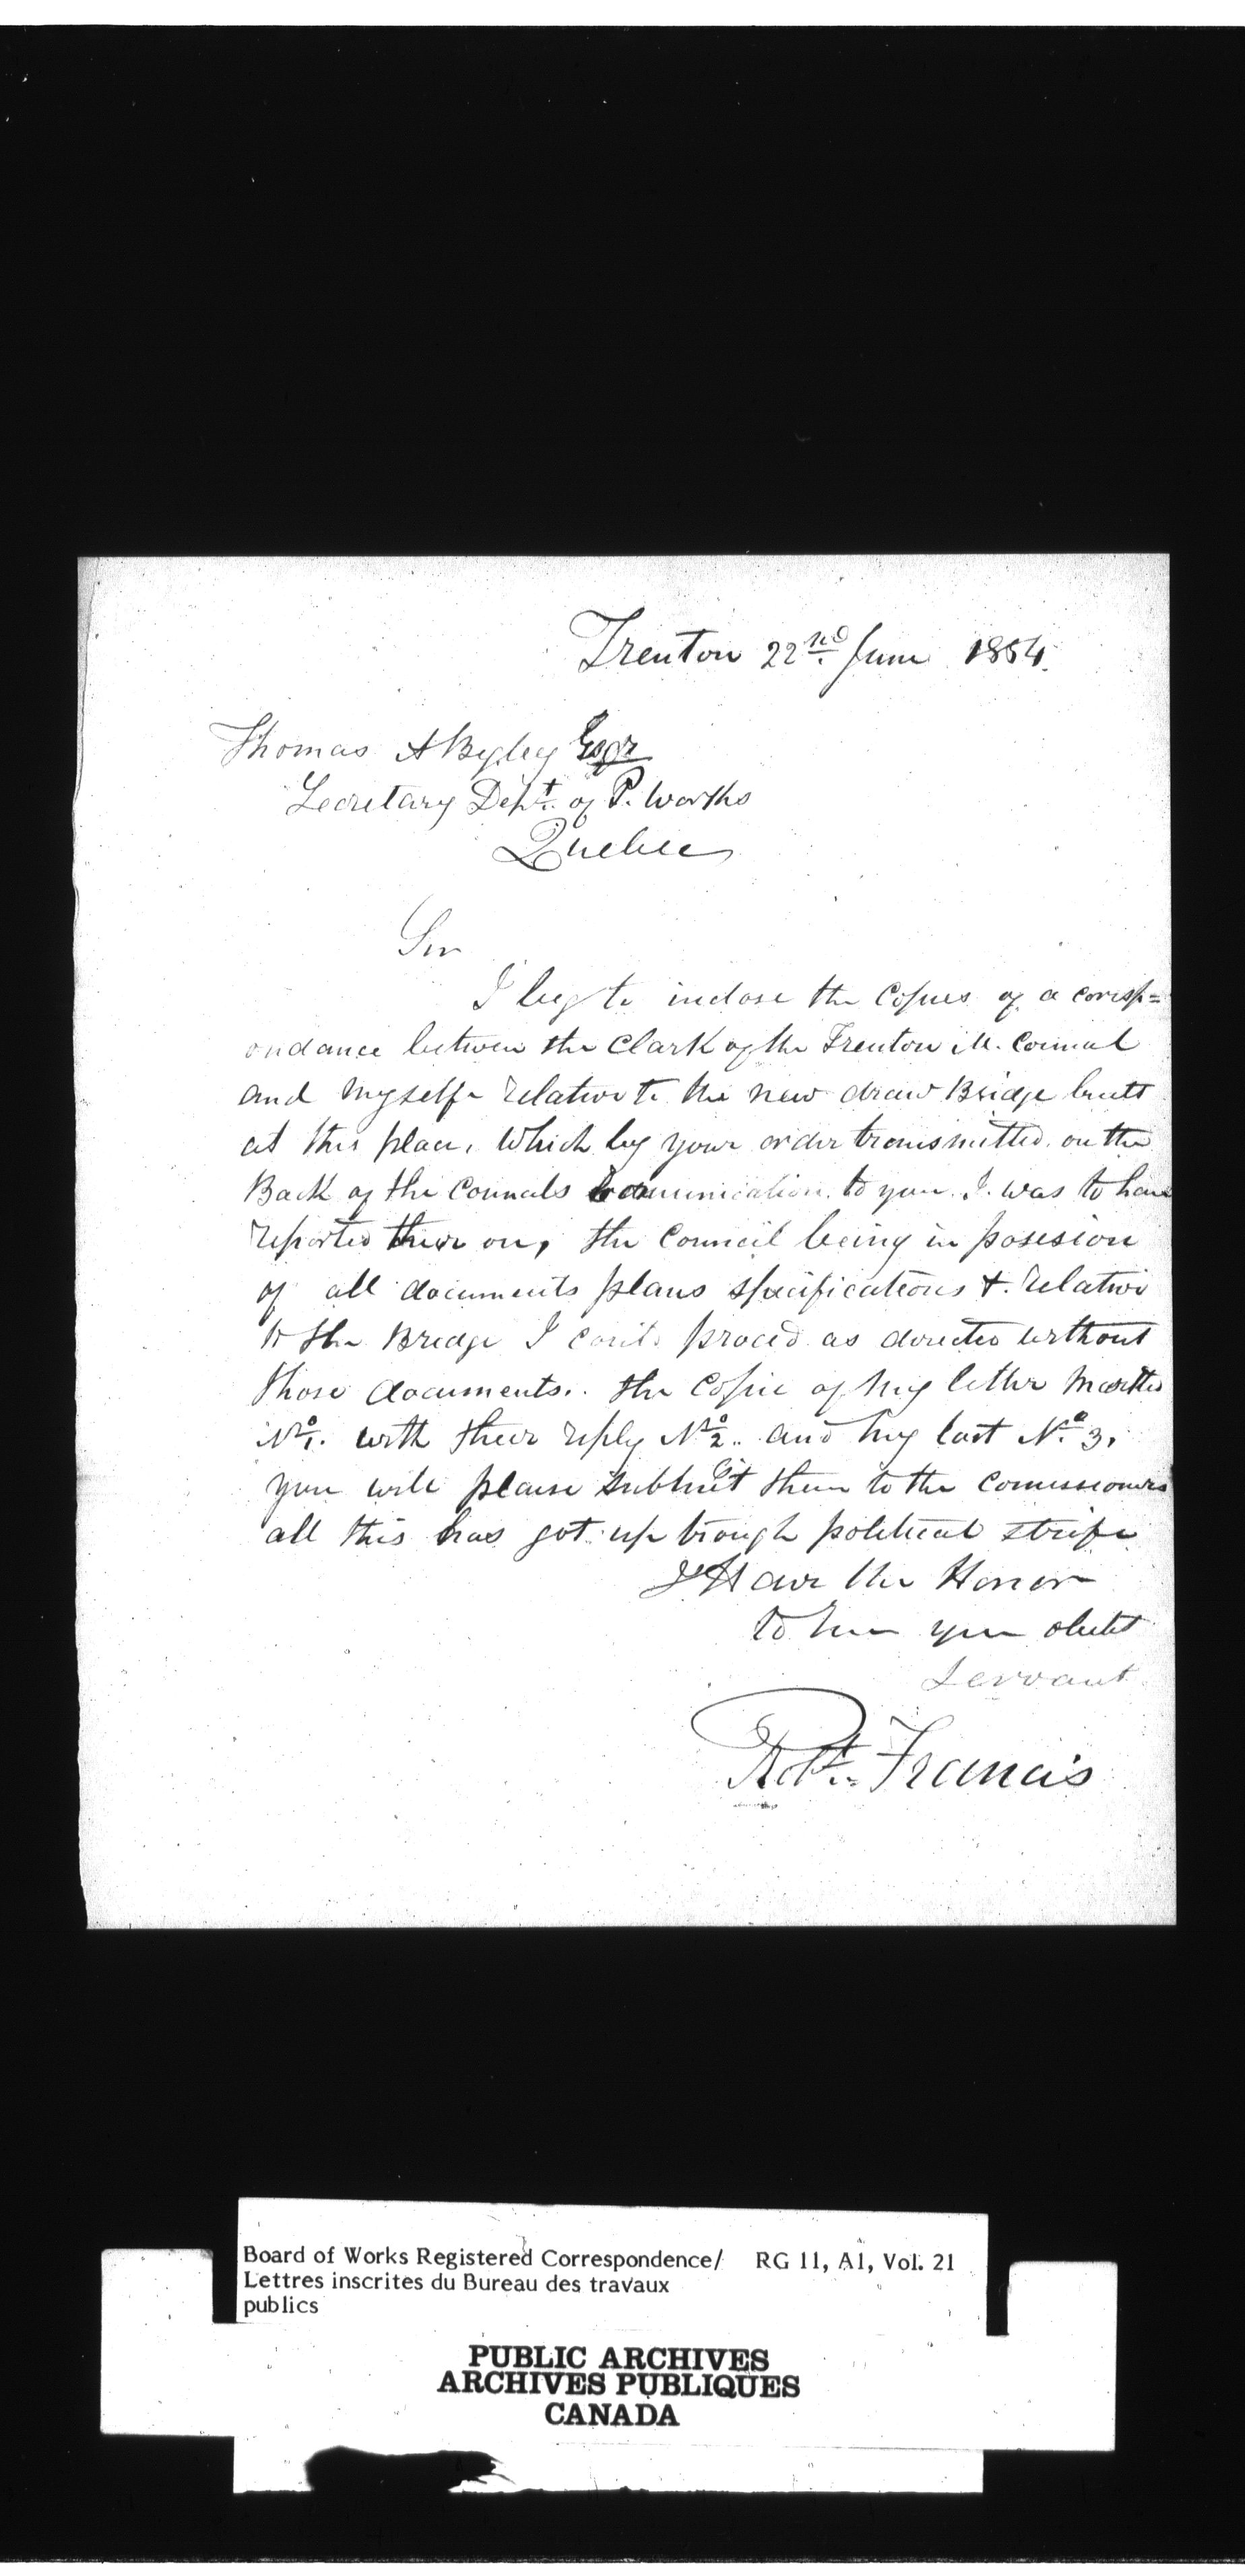 Trenton 22nd June 1854.
Thomas A Begley Esqr
Secretary Dept. of P. Works
Quebec
Sir
I beg to inclose the Copies of a corisp=
ondance between the Clark of the Trenton M. Council
and myself relative to the new draw Bridge built
at this place, Which by your order transmitted on the
Back of the Councils communication to you I was to have
reported their on, the Council being in posesion
of all documents plans specifications &. relative
to the Bredge I proced as directed without
those documents.. the Copie of my letter Marked
No. 1. with their reply No. 2.. and my last No. 3,
you will please submit them to the Comissioners
all this has got up trough political strife
I Have the Honor
to be your obedt
Servant
Robt. Francis
Board of Works Registered Correspondence/ RG 11, A1, Vol. 21
Lettres inscrites du Bureau des travaux
publics
PUBLIC ARCHIVES
ARCHIVES PUBLIQUES
CANADA